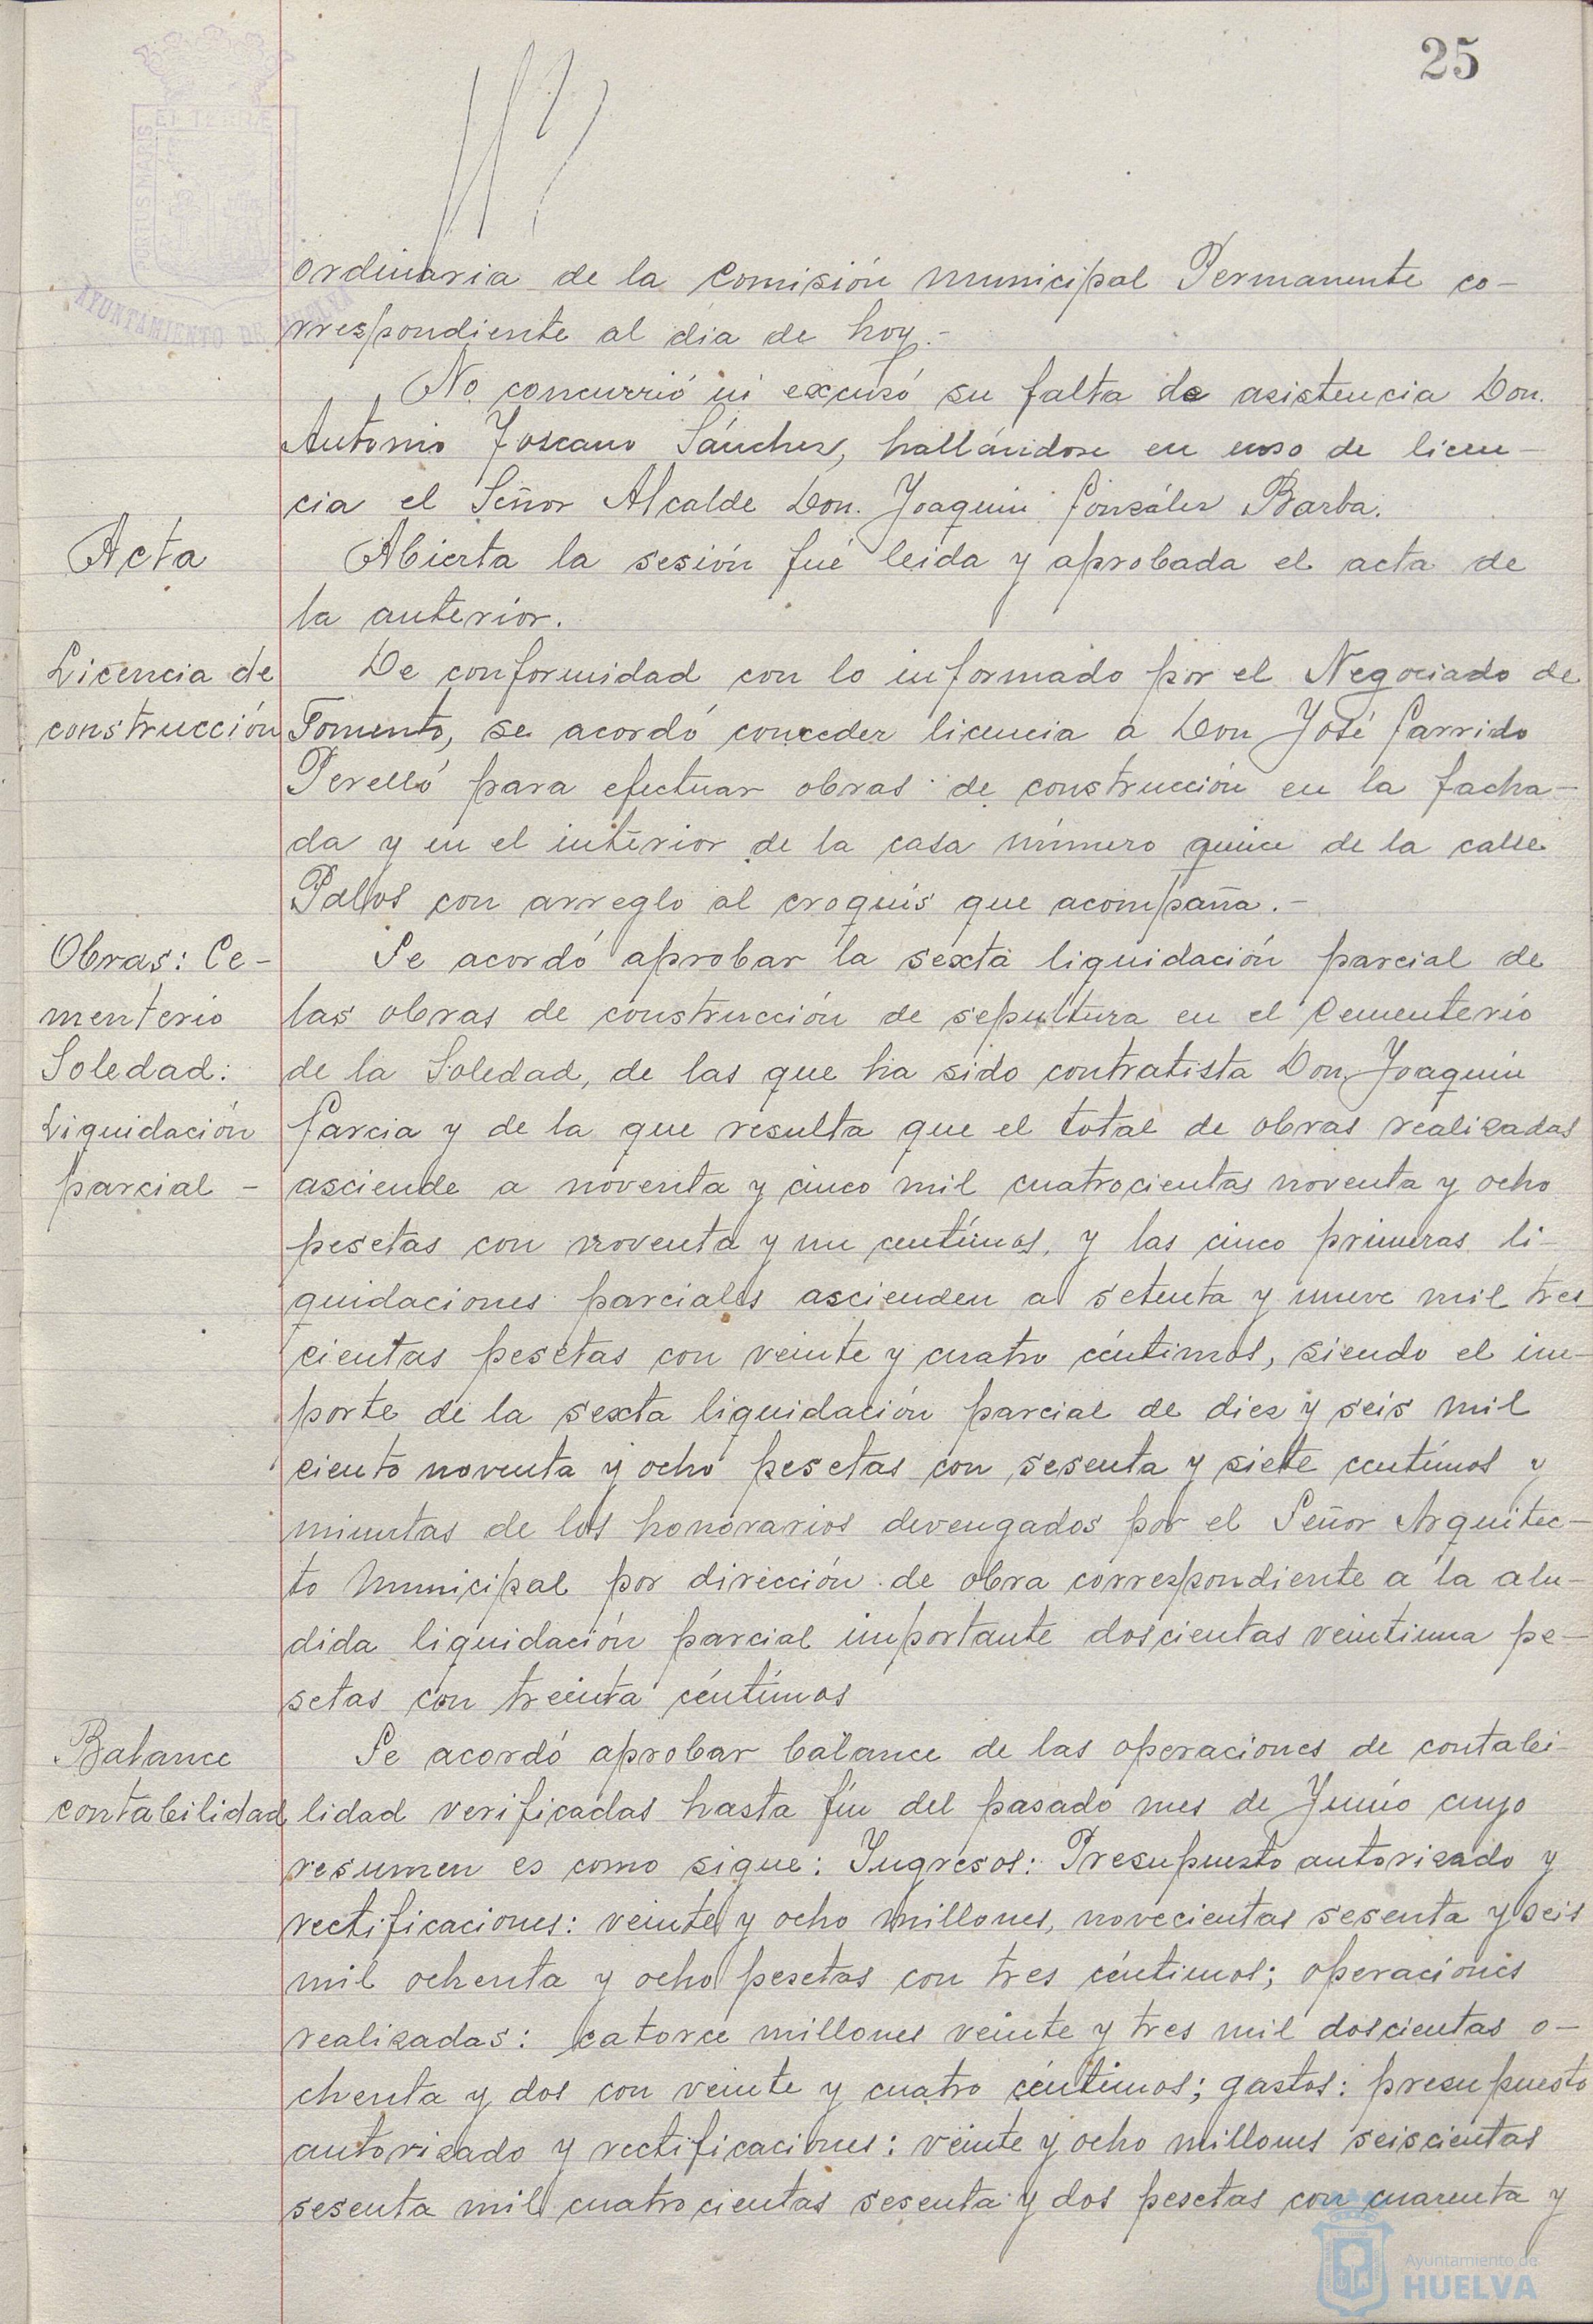 25
PORTUS MARIS
ET TERRE
AYUNTAMIENTO DE
ordinaria de la Comisión Municipal Permanente co-
rrespondiente al dia de hoy.-
No concurrió ni excusó su falta de asistencia Don.
Antonio Toscano Sánchez, hallándose en uso de licen-
cia el Señor Alcalde Don. Joaquin González Barba.
Acta
Abierta la sesión fué leida y aprobada el acta de
la anterior.
Licencia de
construcción
De conformidad con lo informado por el Negociado de
Fomento, se acordó conceder licencia a Don José Garrido
Perelló para efectuar obras de construcción en la facha-
da y en el interior de la casa número quince de la calle
Palos con arreglo al croquis que acompaña.-
Obras: Ce-
menterio
Soledad:
Liquidación
parcial -
Se acordó aprobar la sexta liquidación parcial de
las obras de construcción de sepultura en el Cementerio
de la Soledad, de las que ha sido contratista Don Joaquin
Garcia y de la que resulta que el total de obras realizadas
asciende a noventa y cinco mil cuatrocientas noventa y ocho
pesetas con noventa y un centímos, y las cinco primeras li-
quidaciones parciales ascienden a setenta y nueve mil tres
cientas pesetas con veinte y cuatro céntimos, siendo el im-
porte de la sexta liquidación parcial de diez y seis mil
ciento noventa y ocho pesetas con sesenta y siete centímos y
minutas de los honorarios devengados por el Señor Arquitec-
to Municipal por dirección de obra correspondiente a la alu-
dida liquidación parcial importante doscientas veintiuna pe-
setas con treinta céntimos
Balance
contabilidad
Se acordó aprobar balance de las operaciones de contabi-
lidad verificadas hasta fin del pasado mes de Junio cuyo
resumen es como sigue: Ingresos: Presupuesto autorizado y
rectificaciones: veinte y ocho millones, novecientas sesenta y seis
mil ochenta y ocho pesetas con tres céntimos; operaciones
realizadas: catorce millones veinte y tres mil doscientas o-
chenta y dos con veinte y cuatro céntimos; gastos: presupuesto
autorizado y rectificaciones: veinte y ocho millones seiscientas
sesenta mil cuatrocientas sesenta y dos pesetas con cuarenta y
Ayuntamiento de
HUELVA